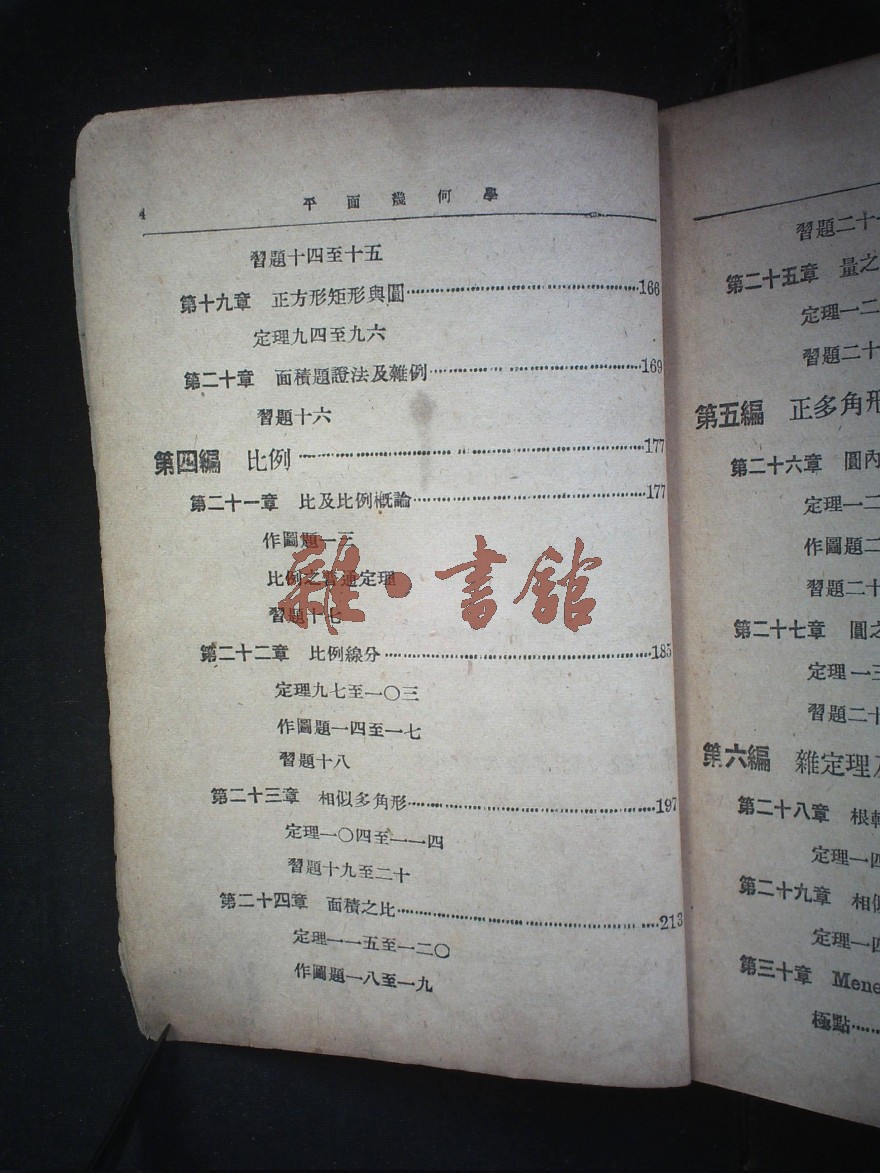 4 平面幾何學
習題十四至十五
第十九章 正方形矩形與圓……166
定理九四至九六
第二十章 面積題證法及雜例……169
習題十六
第四編 比例……177
第二十一章 比及比例概論……177
作圖題一三
比例之普通定理
習題十七
第二十二章 比例線分……185
定理九七至一〇三
作圖題一四至一七
習題十八
第二十三章 相似多角形……197
定理一〇四至一一四
習題十九至二十
第二十四章 面積之比……213
定理一一五至一二〇
作圖題一八至一九
雜·書館
習題二十一
第二十五章 量之
定理一二
習題二十
第五編 正多角形
第二十六章 圓內
定理一二
作圖題二
習題二十
第二十七章 圓之
定理一三
習題二十
第六編 雜定理
第二十八章 根軸
定理一四
第二十九章 相似
定理一四
第三十章 Mene
極點……